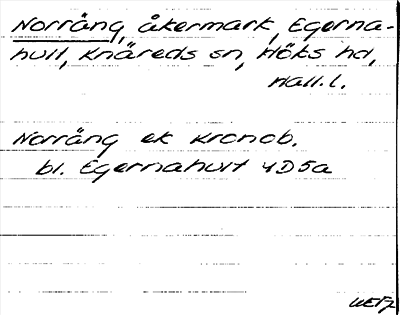 Norräng, åkermark, Egerna-
hult, Knäreds sn, Höks hd,
Hall. l.
Norräng ek Kronob.
bl. Egernahult 4D5a